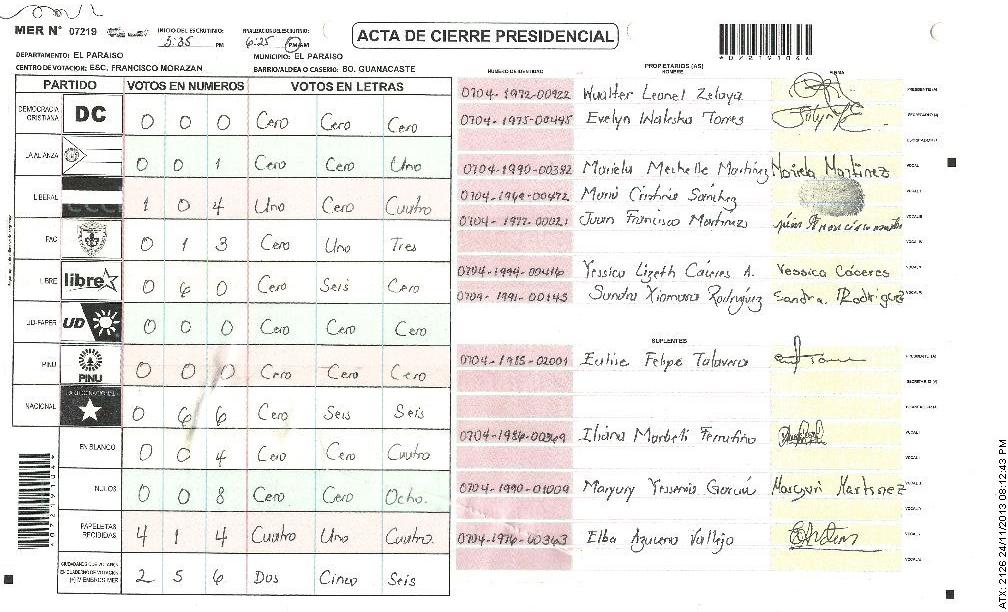 MER N° 07219
INICIO DEL ESCRUTINIO:
5:35 PM
FINALIZACION ESCRUTINIO:
6:25 PM AM
ACTA DE CIERRE PRESIDENCIAL
DEPARTAMENTO: EL PARAISO
MUNICIPIO: EL PARAISO
CENTRO DE VOTACION: ESC. FRANCISCO MORAZAN
BARRIO/ALDEA O CASERIO: BO. GUANACASTE
PARTIDO VOTOS EN NUMEROS VOTOS EN LETRAS
DEMOCRACIA CRISTIANA DC 0 0 0 Cero Cero Cero
LA ALIANZA 0 0 1 Cero Cero Uno
LIBERAL 1 0 4 Uno Cero Cuatro
PAC 0 1 3 Cero Uno Tres
LIBRE libre 0 6 0 Cero Seis Cero
UD-FAPER UD 0 0 0 Cero Cero Cero
PINU PINU 0 0 0 Cero Cero Cero
NACIONAL 0 6 6 Cero Seis Seis
EN BLANCO 0 0 4 Cero Cero Cuatro
NULOS 0 0 8 Cero Cero Ocho.
PAPELETAS RECIBIDAS 4 1 4 Cuatro Uno Cuatro.
CIUDADANOS QUE VOTARON EN CUADERNO DE VOTACION (+) MIEMBROS MER 2 5 6 Dos Cinco Seis
NUMERO DE IDENTIDAD PROPIETARIOS (AS) NOMBRE FIRMA
0704-1972-00922 Wualter Leonel Zelaya PRESIDENTE (A)
0704-1975-00445 Evelyn Waleska Torres SECRETARIO (A)
0704-1990-00392 Mariela Mechelle Martinez Mariela Martinez
0704-1969-00472 Maria Cristina Sánchez
0704-1977-00021 Juan Francisco Martinez
0704-1994-00416 Yessica Lizeth Cáceres A. Yessica Cáceres
0704-1991-00145 Sandra Xiomara Rodríguez Sandra. Rodriguez
SUPLENTES
0704-1985-02001 Felipe Talavera PRESIDENTE (A)
SECRETARIO (A)
0704-1986-00369 Iliana Marbeli Ferrufino
0704-1990-01009 Maryury Yessenia García Maryuri Martinez
0704-1976-00363 Elba Azucena Vallejo
ATX: 2126 24/11/2013 08:12:43 PM